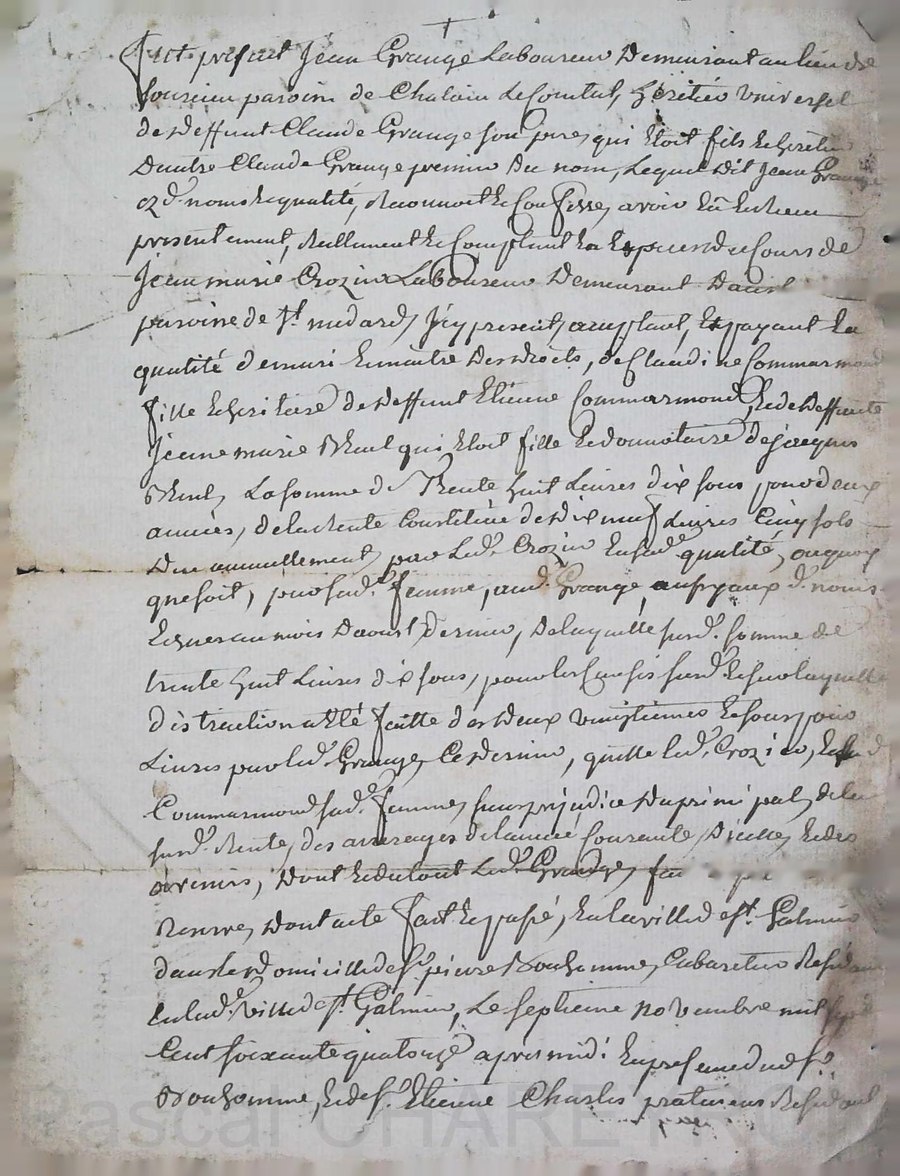 fut présent Jean Grange Laboureur Demeurant au lieu de
paroisse de Chalain Le Comtal, héritier universel
de deffunt Claude Grange son pere, qui étoit fils & héritier
Dautre Claude Grange premier du nom, Lequel dit Jean Grange
ezd. noms & qualité, Reconnoit & Confesse, avoir Eu & Receu
presentement, Reellement & Comptant En Especes du Cours de
Jean marie Crozier Laboureur Demeurant
paroisse de St. medard, icy present, acceptant, & payant En
qualité de mari & maitre des droits, de Claudine Commarmond
fille & heritiere de deffunt Etienne Commarmond, & de deffunte
Jeanne marie qui étoit fille & donnataire de jacques
La somme de Trente huit Livres dix sous, pour deux
années, de la Rente Constituée de dix neuf Livres Cinq sols
Due annuellement, par Led. Crozier En sad. qualité,
que soit, pour sad. femme, aud. Grange, auxd. noms
Echues au mois Daoust dernier, De laquelle susd. somme de
trente huit Livres dix sous, pour les Causes susd. & sur laquelle
distraction a Eté faitte des deux vingtiemes & sous pour
Livres par led. Grange, Ce dernier, quitte led. Crozier, & lad.
Commarmond sad. femme, sans prejudice du principal, de la
susd. Rente, des arrerages de l'année Courante, D'icelle, & des
avenirs, Dont & du tout Led. Grange,
Dont acte fait & passé, En la ville de St. Galmier
dans le Domicille de Sr. pierre Bonhomme, Cabaretier Résidant
En lad. ville de St. Galmier, Le septieme novembre mil sept
Cent soixante quatorze apres midi En presence dud. Sr.
Bonhomme, & de Sr. Etienne Charles praticiens Résidants
Pascal CHARETRON